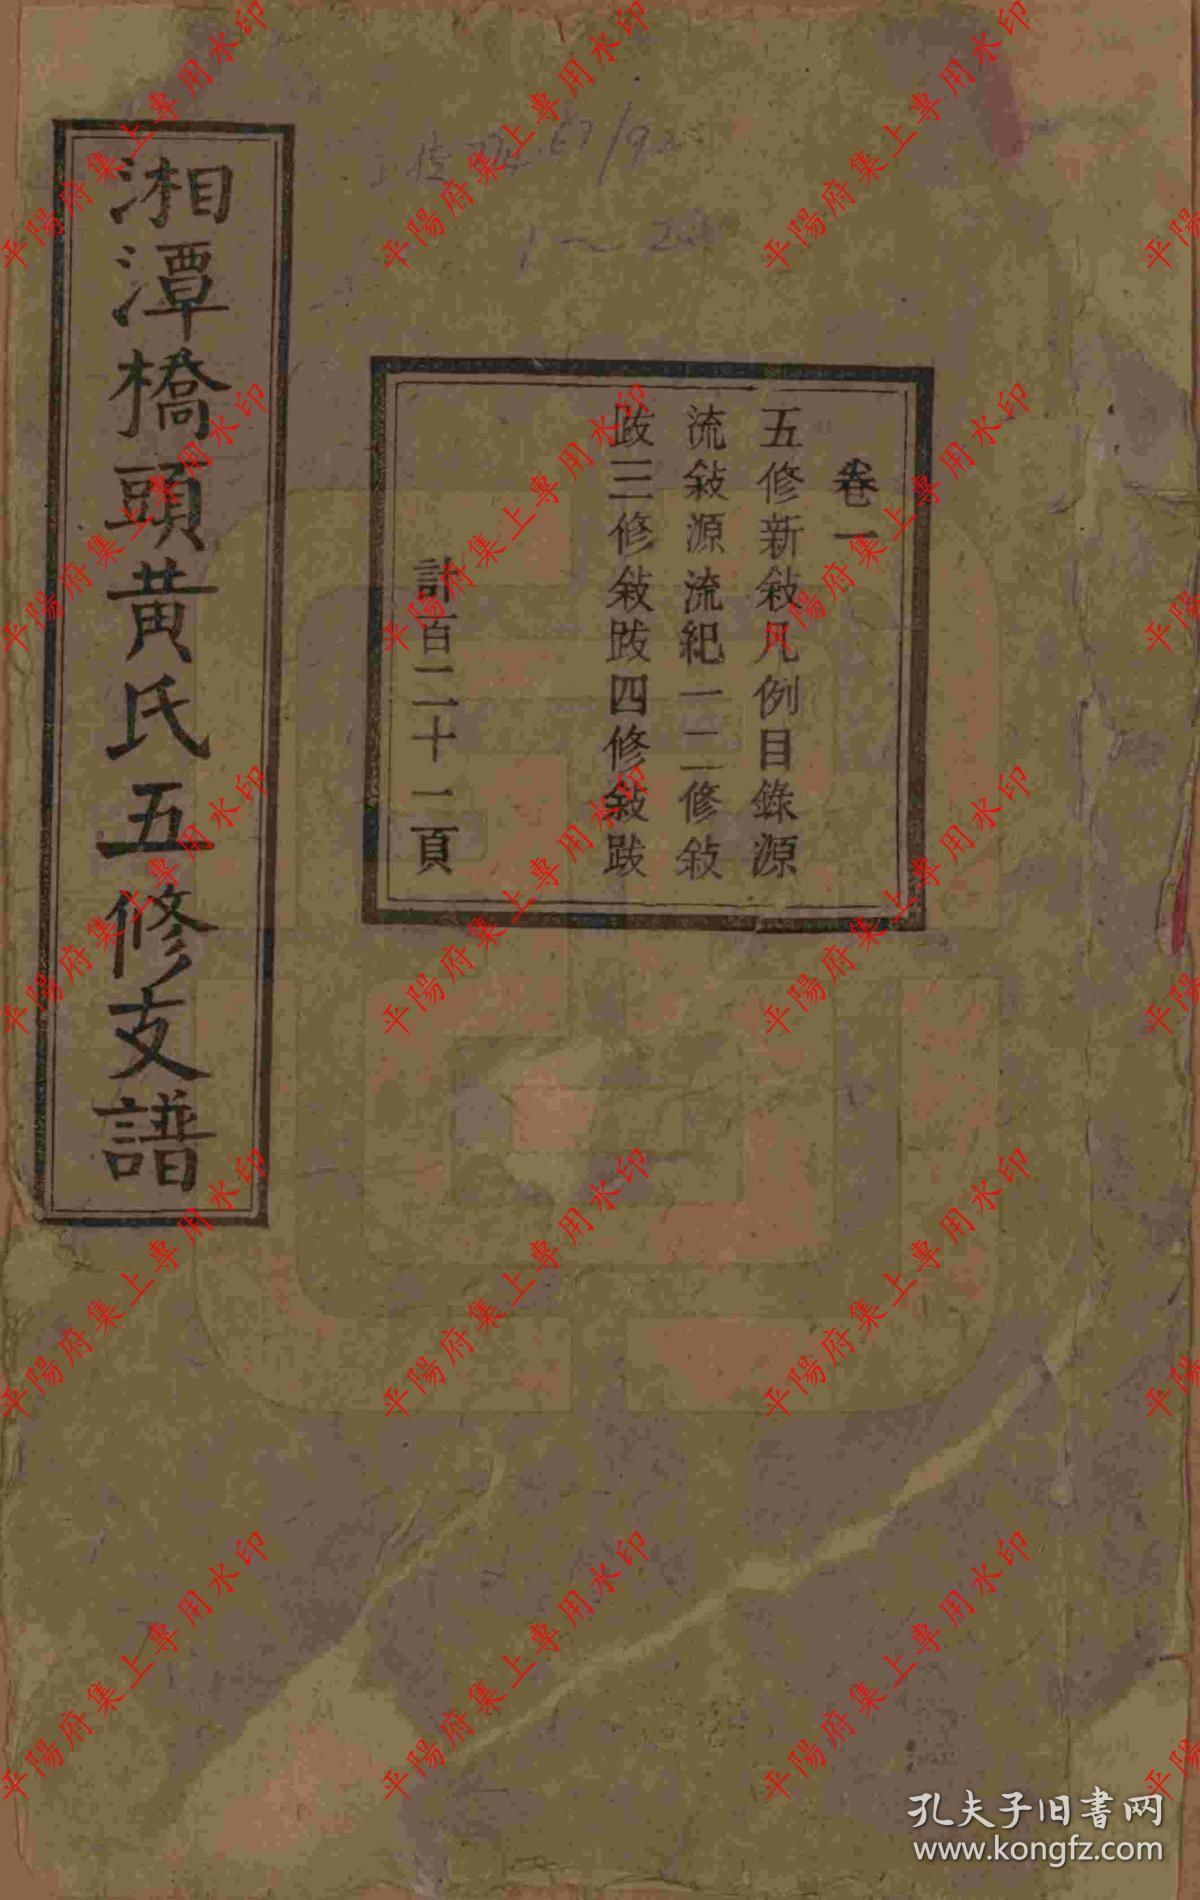 湘潭橋頭黃氏五修支譜
卷一
五修新敍凡例目錄源
流敍源流紀一二修敍
跋三修敍跋四修敍跋
計百二十一頁
平陽府集上專用水印
孔夫子旧書网
www.kongfz.com